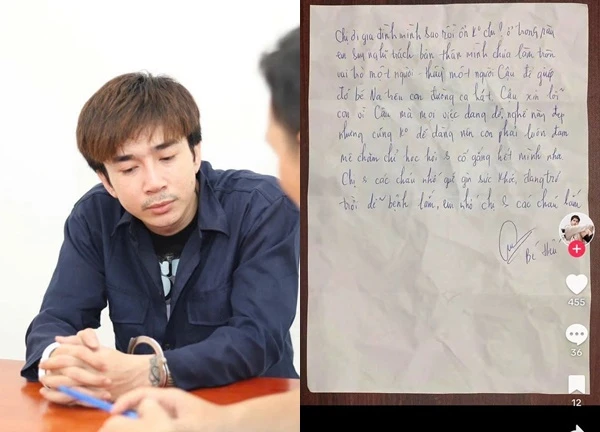 Chị ơi gia đình mình sao rồi ổn ko chị? ở trong này
em suy nghĩ trách bản thân mình chưa làm tròn
vai trò một người thầy một người Cậu để giúp
đỡ bé Na trên con đường ca hát. Cậu xin lỗi
con vì Cậu mà mọi việc dang dở, nghề này đẹp
nhưng cũng ko dễ dàng nên con phải luôn đam
mê chăm chỉ học hỏi & cố gắng hết mình nha
Chị & các cháu nhớ giữ gìn sức khỏe, đang trở
trời dễ bệnh lắm, em nhớ chị & các cháu lắm
Bé
455
36
12